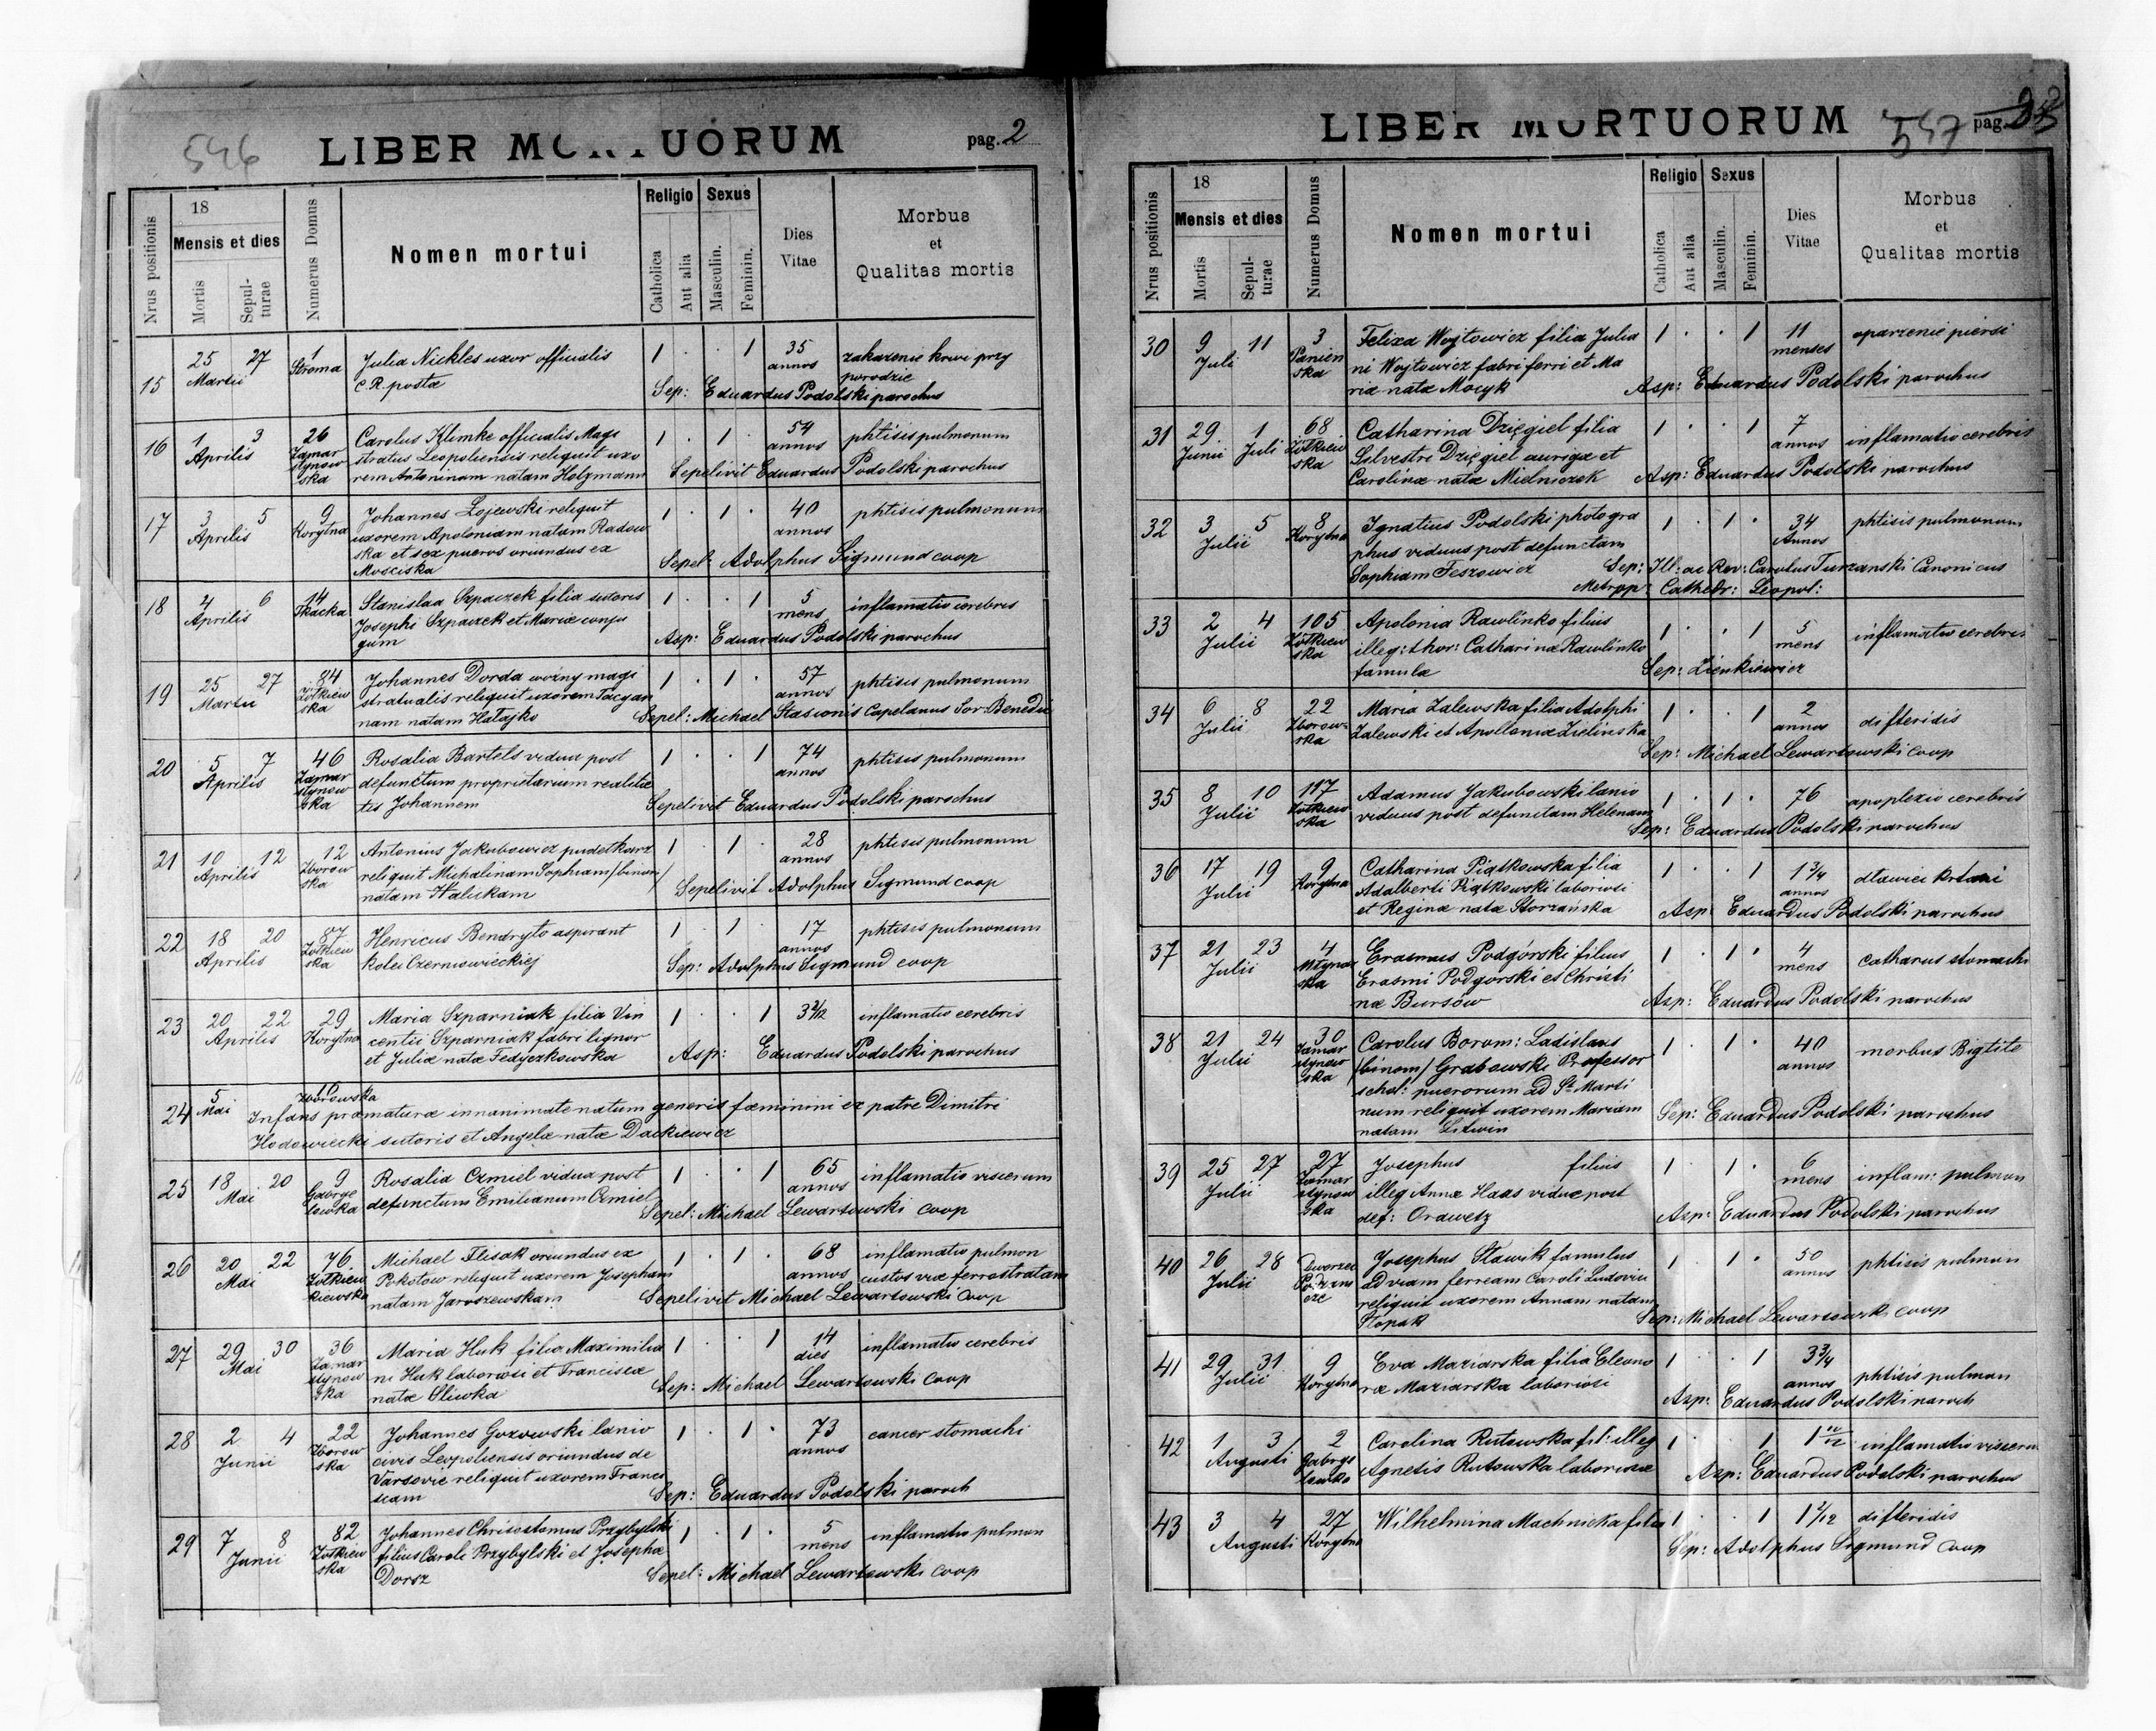 546
LIBER MORTUORUM
pag. 2
Nrus positionis
18
Mensis et dies
Mortis
Sepulturae
Numerus Domus
Nomen mortui
Religio
Catholica
Aut alia
Sexus
Masculin.
Feminin.
Dies Vitae
Morbus et Qualitas mortis
15 25 27 Martii 1 Stroma Julia Nickles uxor officialis 1 · · 1 35 annos zakażenie krwi przy
C.R. postæ porodzie
Sep: Eduardus Podolski parochus
16 1 3 Aprilis 26 Zamarstynowska Carolus Klimke officialis Magi 1 · 1 · 54 annos phtisis pulmonum
stratus Leopoliensis reliquit uxo
rem Antoninam natam Holzmann Sepelivit Eduardus Podolski parochus
17 3 5 Aprilis 9 Korytna Johannes Lojewski reliquit 1 · 1 · 40 annos phtisis pulmonum
uxorem Apoloniam natam Radow
ska et sex pueros oriundus ex
Mosciska Sepel: Adolphus Sigmund coop
18 4 6 Aprilis 14 Tkacka Stanislaa Szpaczek filia sutoris 1 · · 1 5 mens inflamatio cerebris
Josephi Szpaczek et Mariæ conju
gum Asp: Eduardus Podolski parochus
19 25 27 Martii 84 Żółkiewska Johannes Dorda woźny magi 1 · 1 · 57 annos phtisis pulmonum
stratualis reliquit uxorem Tacyan
nam natam Hałajko Sepel: Michael Stasionis Capelanus Sor: Benedic
20 5 7 Aprilis 46 Zamarstynowska Rosalia Bartels vidua post 1 · · 1 74 annos phtisis pulmonum
defunctum proprietarium realita
tis Johannem Sepelivit Eduardus Podolski parochus
21 10 12 Aprilis 12 Zborowska Antonius Jakubowicz pudełkarz 1 · 1 · 28 annos phtisis pulmonum
reliquit Michalinam Sophiam /binom/
natam Halickam Sepelivit Adolphus Sigmund coop
22 18 20 Aprilis 87 Żółkiewska Henricus Bendryto aspirant 1 · 1 · 17 annos phtisis pulmonum
kolei Czerniowieckiej Sep: Adolphus Sigmund coop
23 20 22 Aprilis 29 Korytna Maria Szparniak filia Vin 1 · · 1 3 2/12 inflamatio cerebris
centii Szparniak fabri lignar
et Juliæ natæ Fedyczkowska Asp: Eduardus Podolski parochus
24 5 Mai 16 Zborowska Infans præmaturæ innanimate natum generis fæminini ex patre Dimitri
Hodowiecki sutoris et Angelæ natæ Dackiewicz
25 18 20 Mai 9 Gabryelowka Rosalia Czmiel vidua post 1 · · 1 65 annos inflamatio viscerum
defunctum Emilianum Czmiel Sepel: Michael Lewartowski coop
26 20 22 Mai 76 Żółkiewkiewska Michael Flisak oriundus ex 1 · 1 · 68 annos inflamatio pulmon
Pokotow reliquit uxorem Josepham custos viæ ferrostratam
natam Jaroszewskam Sepelivit Michael Lewartowski coop
27 29 30 Mai 36 Zamarstynowska Maria Huk filia Maximilia 1 · · 1 14 dies inflamatio cerebris
ni Huk laboriosi et Franciscæ
natæ Sliwka Sep: Michael Lewartowski coop
28 2 4 Junii 22 Zborowska Johannes Gozowski lanio 1 · 1 · 73 annos cancer stomachi
civis Leopoliensis oriundus de
Varsovie reliquit uxorem Francis
scam Sep: Eduardus Podolski paroch
29 7 8 Junii 82 Żółkiewska Johannes Chrisostomus Przybylski 1 · 1 · 5 mens inflamatio pulmon
filius Caroli Przybylski et Josephæ
Dorsz Sepel: Michael Lewartowski coop
LIBER MORTUORUM
547
pag.
Nrus positionis
18
Mensis et dies
Mortis
Sepulturae
Numerus Domus
Nomen mortui
Religio
Catholica
Aut alia
Sexus
Masculin.
Feminin.
Dies Vitae
Morbus et Qualitas mortis
30 9 11 Juli 3 Panienska Felixa Wojtowicz filia Julia 1 · · 1 11 menses oparzenie piersi
ni Wojtowicz fabri ferri et Ma
riæ natæ Mocyk Asp: Eduardus Podolski parochus
31 29 Junii 1 Juli 68 Żółkiewska Catharina Dzięgiel filia 1 · · 1 7 annos inflamatio cerebris
Silvestri Dzięgiel aurigæ et
Carolinæ natæ Mielniczek Asp: Eduardus Podolski parochus
32 3 5 Julii 8 Korytna Ignatius Podolski photogra 1 · 1 · 34 Annos phtisis pulmonum
phus viduus post defunctam
Sophiam Feszowicz Sep: Ill: ac Rev: Carolus Turzanski Canonicus
Metropp: Cathedr: Leopol:
33 2 4 Julii 105 Żółkiewska Apolonia Rawlinko filius 1 · · 1 5 mens inflamatio cerebris
illeg: thor: Catharinæ Rawlinko
famulæ Sep: Zienkiewicz
34 6 8 Julii 22 Zborowska Maria Zalewska filia Adolphi 1 · · 1 2 annos difteridis
Zalewski et Apolloniæ Zielinska
Sep: Michael Lewartowski coop
35 8 10 Julii 117 Żółkiewska Adamus Jakubowski lanio 1 · 1 · 76 apoplexio cerebris
viduus post defunctam Helenam
Sep: Eduardus Podolski parochus
36 17 19 Julii 9 Korytna Catharina Piątkowska filia 1 · · 1 1 3/4 annos dławiec krtani
Adalberti Piątkowski laboriosi
et Reginæ natæ Storzańska Asp: Eduardus Podolski parochus
37 21 23 Julii 4 Młynarska Erasmus Podgórski filius 1 · 1 · 4 mens catharus stomachi
Erasmi Podgorski et Christi
næ Bursow Asp: Eduardus Podolski parochus
38 21 24 Julii 30 Zamarstynowska Carolus Borom: Ladislaus 1 · 1 · 40 annos morbus Bigtite
/binom/ Grabowski Professor
schol: puerorum ad St Marti
num reliquit uxorem Mariam
natam Litwin Sep: Eduardus Podolski parochus
39 25 27 Julii 27 Zamarstynowska Josephus filius 1 · 1 · 6 mens inflam: pulmon
illeg Annæ Haas viduæ post
def: Orawetz Asp: Eduardus Podolski parochus
40 26 28 Julii Dworzec Podzamcze Josephus Stawik famulus 1 · 1 · 50 annos phtisis pulmon
ad viam ferream Caroli Ludovici
reliquit uxorem Annam natam
Stopak Sep: Michael Lewartowski coop
41 29 31 Julii 9 Korytna Eva Maziarska filia Eleono 1 · 1 3 3/4 annos phtisis pulmon
ræ Maziarska laboriosi
Asp: Eduardus Podolski paroch
42 1 3 Augusti 2 Gabryelowka Carolina Rutowska fil: illeg 1 · 1 inflamatio viscerum
Agnetis Rutowska laboriosæ Asp: Eduardus Podolski parochus
43 3 4 Augusti 27 Korytna Wilhelmina Machnicka filia 1 · · 1 1 2/12 difteridis
Sep: Adolphus Sigmund coop